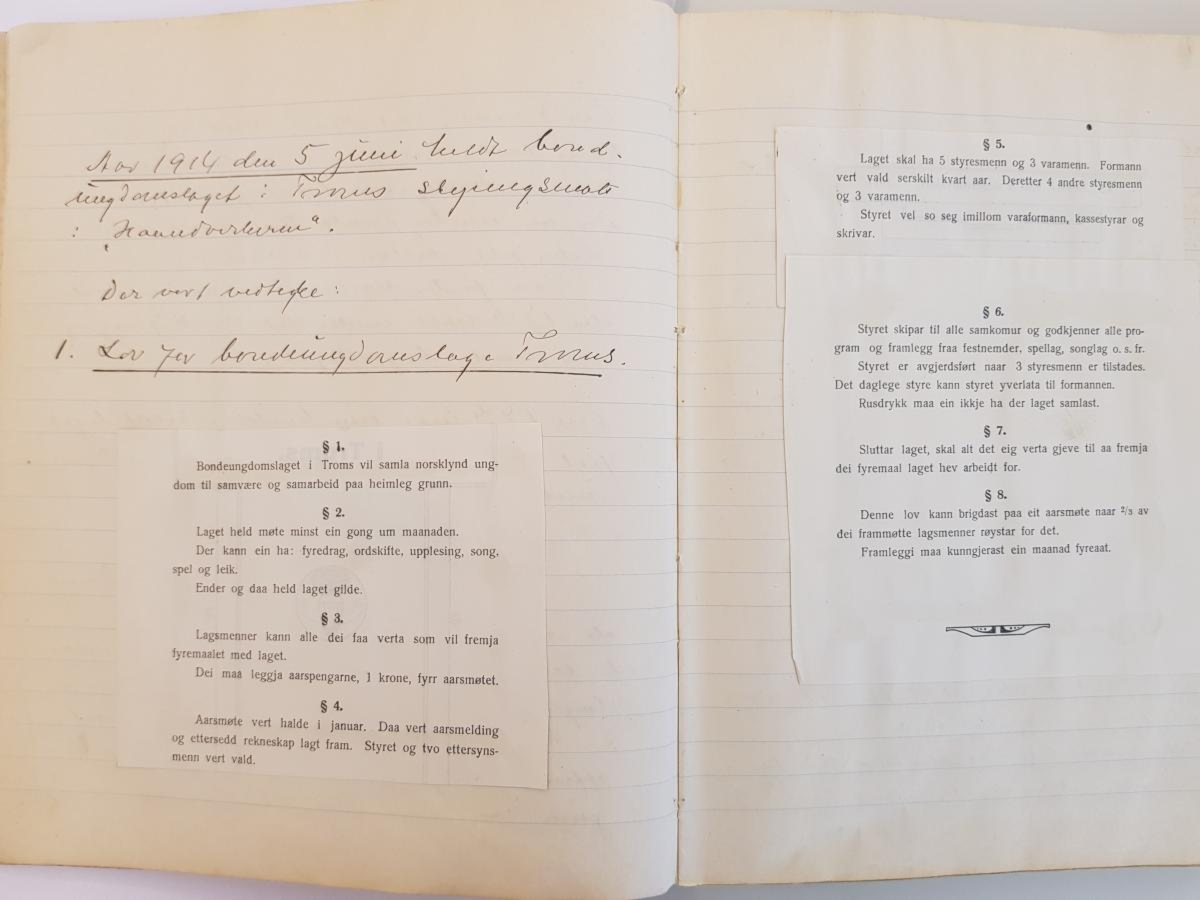 Aar 1914 den 5 juni heldt bond-
ungdomslaget i Troms skipingsmøte
i "Haandverkeren".
Der vart vedteke:
1. Lov for bondeungdomslage Troms.
§ 1.
Bondeungdomslaget i Troms vil samla norsklynd ung-
dom til samvære og samarbeid paa heimleg grunn.
§ 2.
Laget held møte minst ein gong um maanaden.
Der kann ein ha: fyredrag, ordskifte, upplesing, song,
spel og leik.
Ender og daa held laget gilde.
§ 3.
Lagsmenner kann alle dei faa verta som vil fremja
fyremaalet med laget.
Dei maa leggja aarspengarne, 1 krone, fyrr aarsmøtet.
§ 4.
Aarsmøte vert halde i januar. Daa vert aarsmelding
og ettersedd rekneskap lagt fram. Styret og tvo ettersyns-
menn vert vald.
§ 5.
Laget skal ha 5 styresmenn og 3 varamenn. Formann
vert vald serskilt kvart aar. Deretter 4 andre styresmenn
og 3 varamenn.
Styret vel so seg imillom varaformann, kassestyrar og
skrivar.
§ 6.
Styret skipar til alle samkomur og godkjenner alle pro-
gram og framlegg fraa festnemder, spellag, songlag o. s. fr.
Styret er avgjerdsført naar 3 styresmenn er tilstades.
Det daglege styre kann styret yverlata til formannen.
Rusdrykk maa ein ikkje ha der laget samlast.
§ 7.
Sluttar laget, skal alt det eig verta gjeve til aa fremja
dei fyremaal laget hev arbeidt for.
§ 8.
Denne lov kann brigdast paa eit aarsmøte naar ²/₃ av
dei frammøtte lagsmenner røystar for det.
Framleggi maa kunngjerast ein maanad fyreaat.